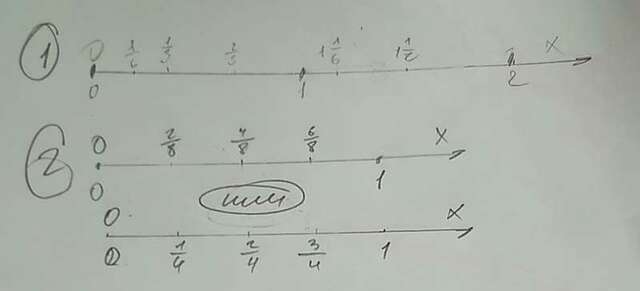 1 0 1/6 1/3 2/3 1 1/6 1 1/2 X
0 1 2
2 0 2/8 4/8 6/8 X
0 1
или
0 X
0 1/4 2/4 3/4 1